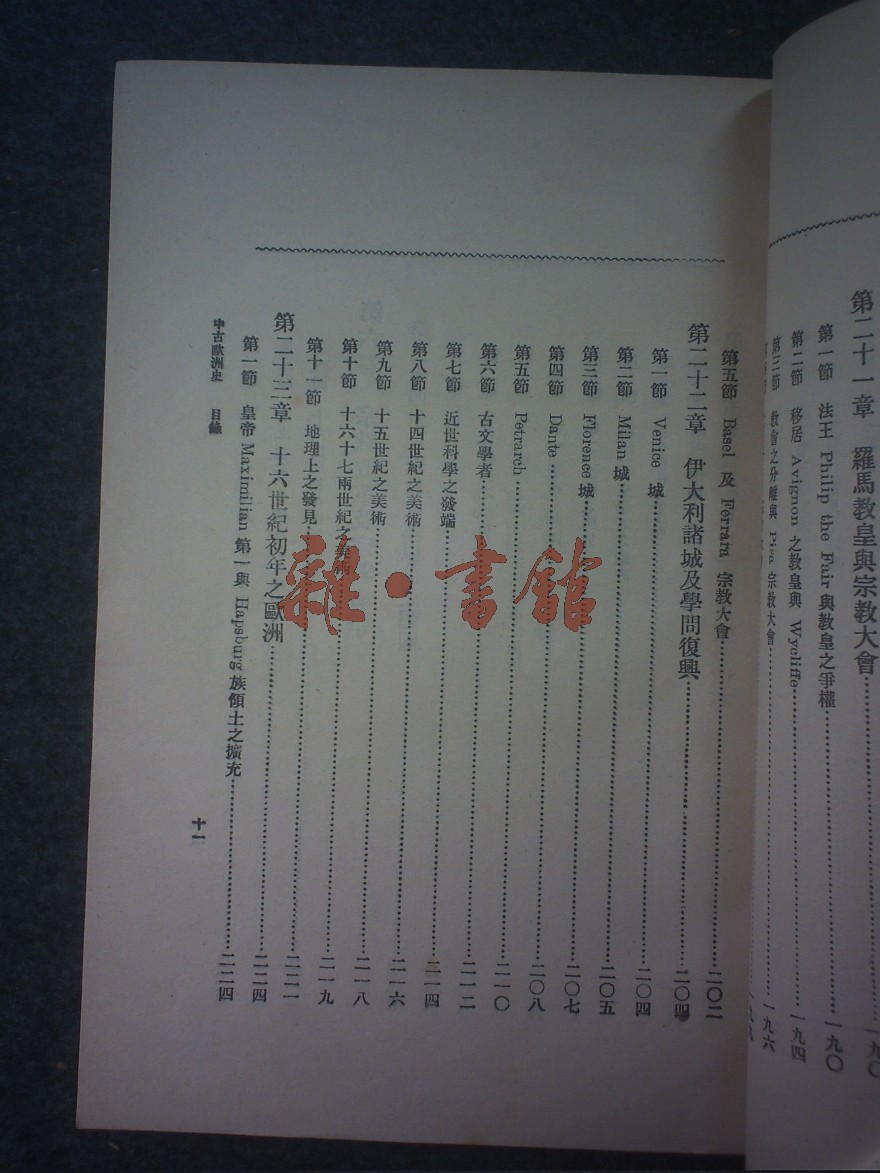 第二十一章 羅馬教皇與宗教大會 一九〇
第一節 法王 Philip the Fair 與教皇之爭權 一九〇
第二節 移居 Avignon 之教皇與 Wycliffe 一九四
第三節 教會之分離與 Pisa 宗教大會 一九六
第五節 Basel 及 Ferrara 宗教大會 二〇二
第二十二章 伊大利諸城及學問復興 二〇四
第一節 Venice 城 二〇四
第二節 Milan 城 二〇五
第三節 Florence 城 二〇七
第四節 Dante 二〇八
第五節 Petrarch 二一〇
第六節 古文學者 二一二
第七節 近世科學之發端 二一四
第八節 十四世紀之美術 二一六
第九節 十五世紀之美術 二一八
第十節 十六十七兩世紀之美術 二一九
第十一節 地理上之發見 二二一
第二十三章 十六世紀初年之歐洲 二二四
第一節 皇帝 Maximilian 第一與 Hapsburg 族領土之擴充 二二四
中古歐洲史 目錄 十一
雜·書館